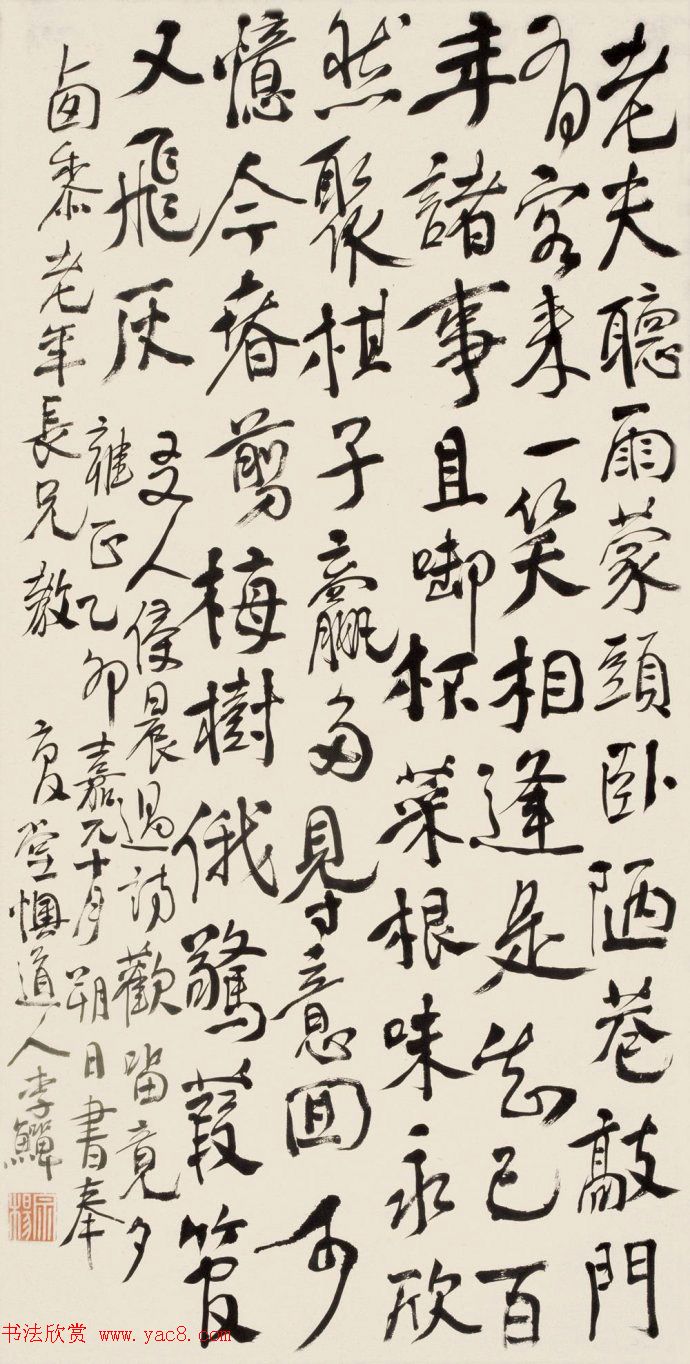 老夫聽雨蒙頭臥陋巷敲門
有客來一笑相逢是知己百
年諸事且啣杯菜根味永欣
然聚棋子贏多㝵意回可
憶今春剪梅樹俄驚葭管
又飛灰
友人侵晨過訪歡留竟夕
雍正乙卯十月朔日書奉
老年長兄教
復堂懊道人李鱓
书法欣赏 www.yac8.com